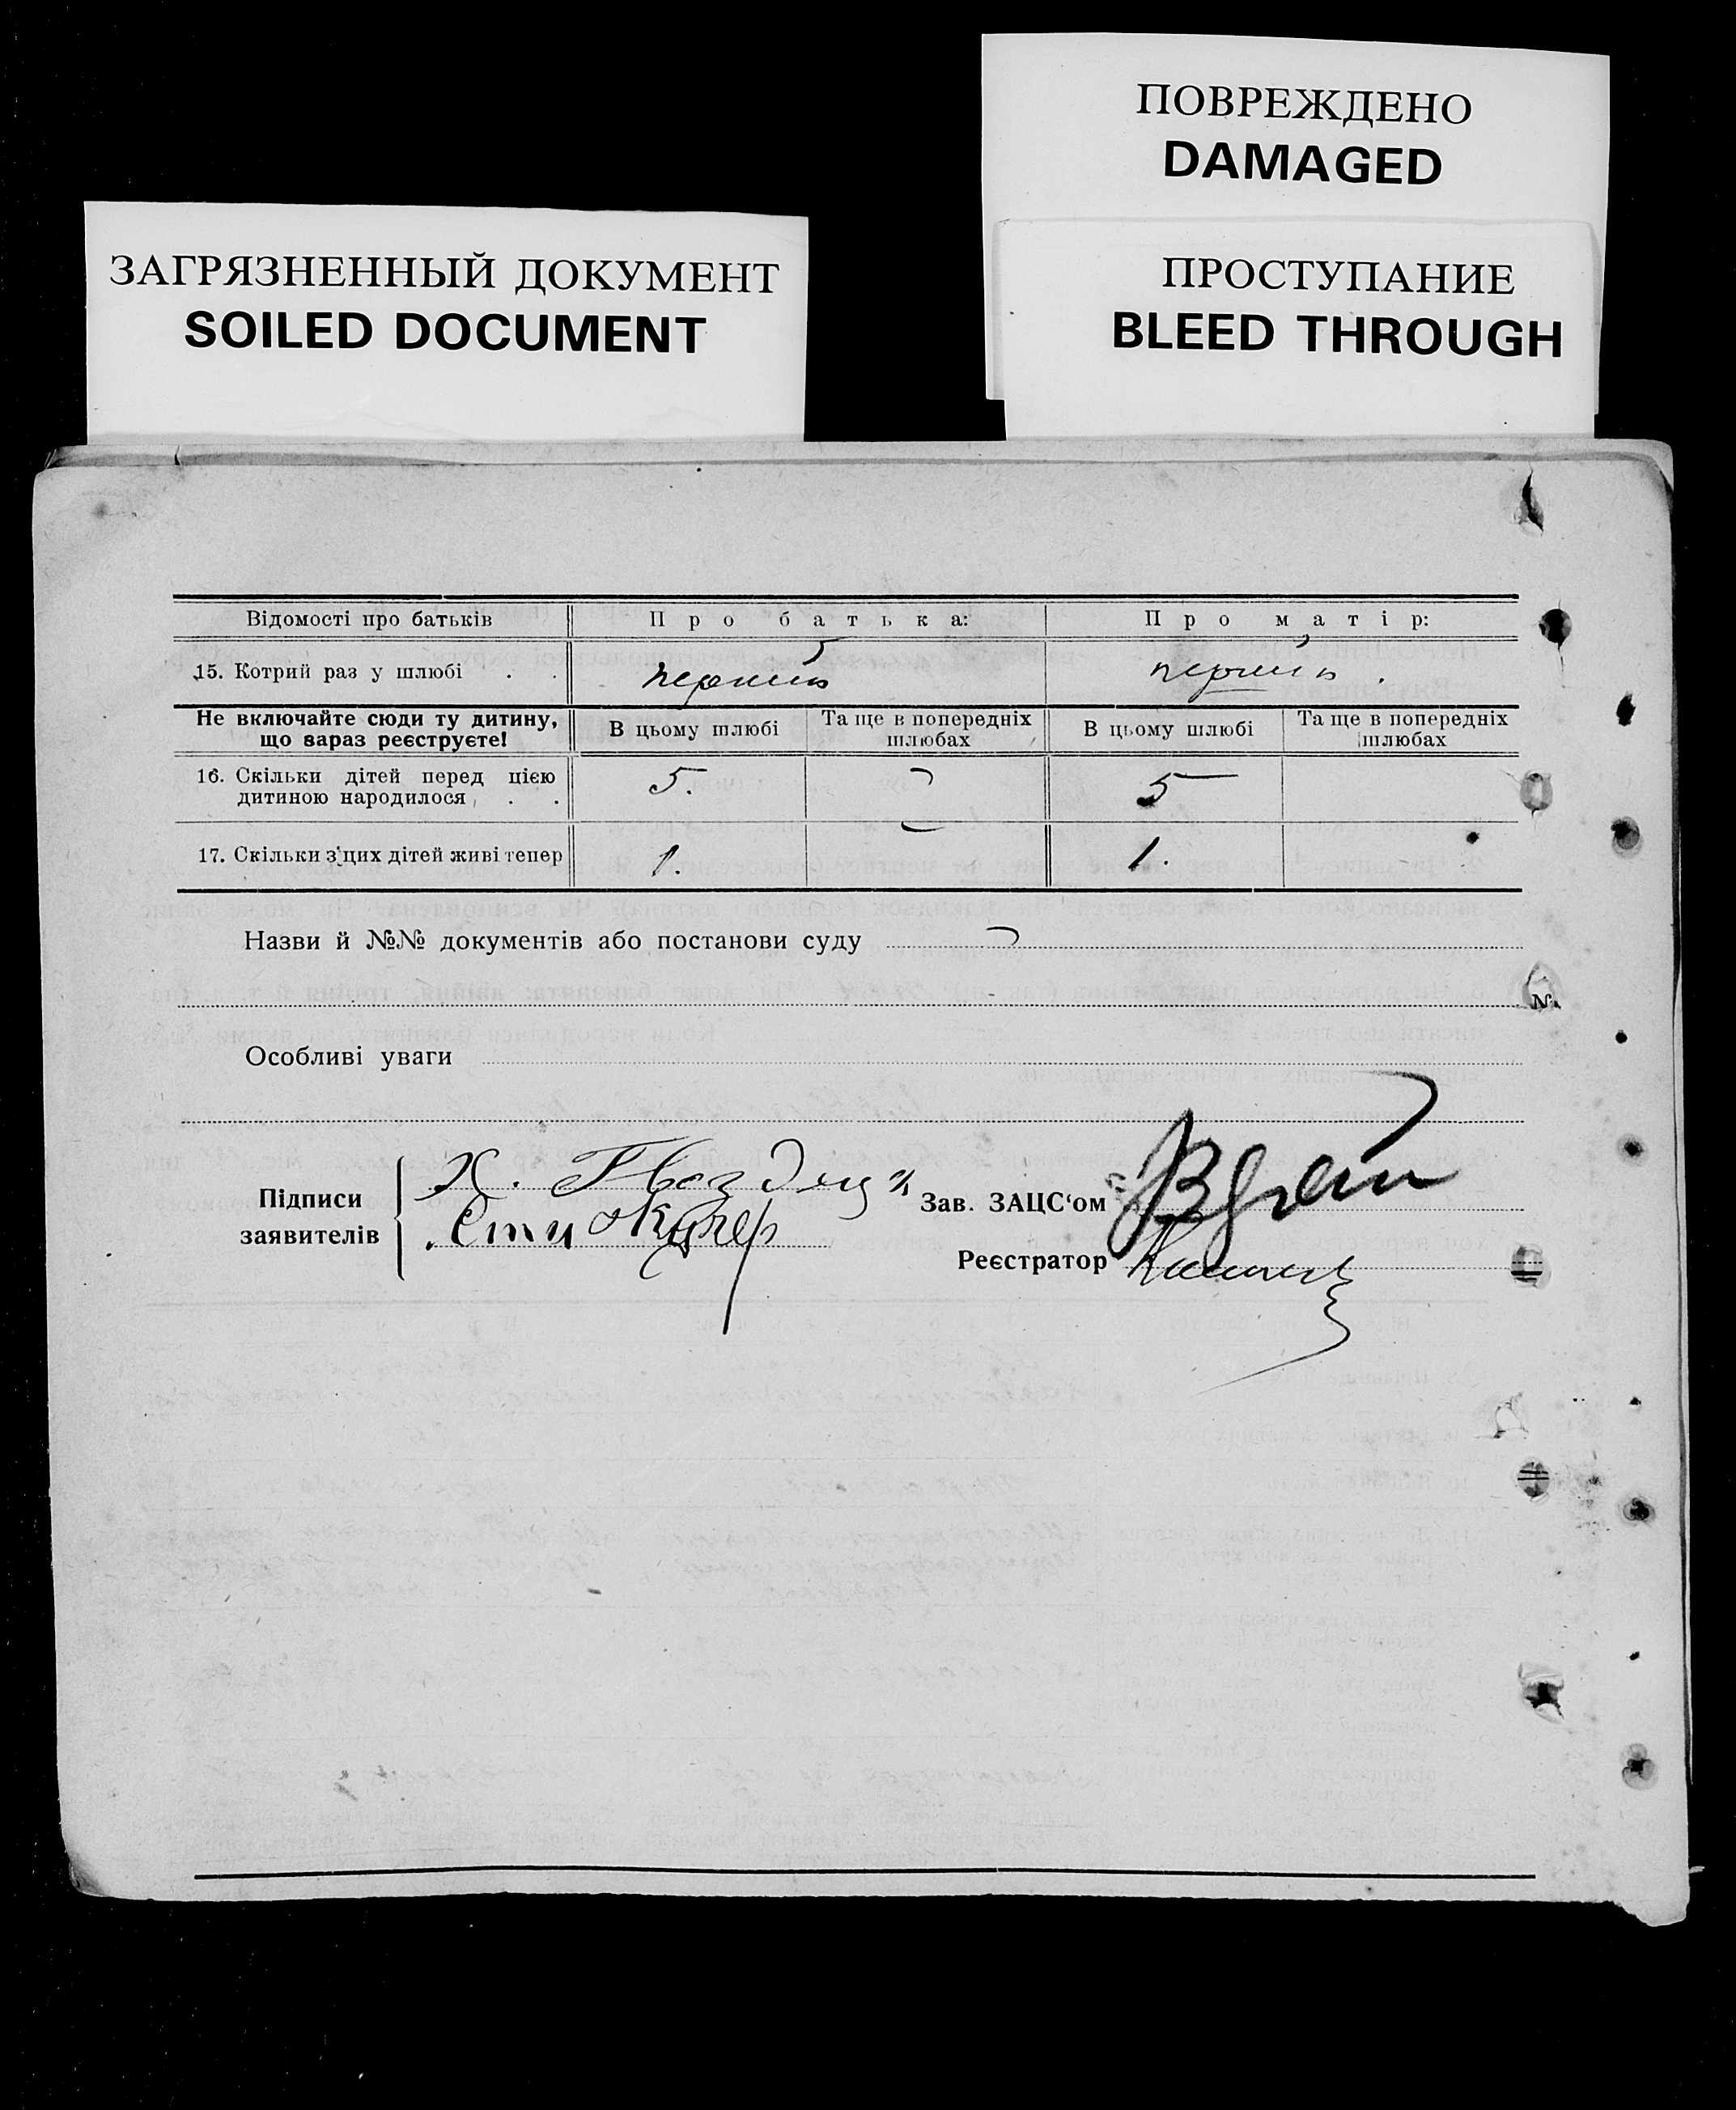 ПОВРЕЖДЕНО
DAMAGED
ЗАГРЯЗНЕННЫЙ ДОКУМЕНТ
SOILED DOCUMENT
ПРОСТУПАНИЕ
BLEED THROUGH
Відомості про батьків Про батька: Про матір:
15. Котрий раз у шлюбі . .
Не включайте сюди ту дитину, що зараз реєструєте! В цьому шлюбі Та ще в попередніх шлюбах В цьому шлюбі Та ще в попередніх шлюбах
16. Скільки дітей перед цією дитиною народилося . . 5. 5
17. Скільки з'цих дітей живі тепер 1. 1.
Назви й №№ документів або постанови суду
Особливі уваги
Підписи заявителів
Зав. ЗАЦС‘ом
Реєстратор